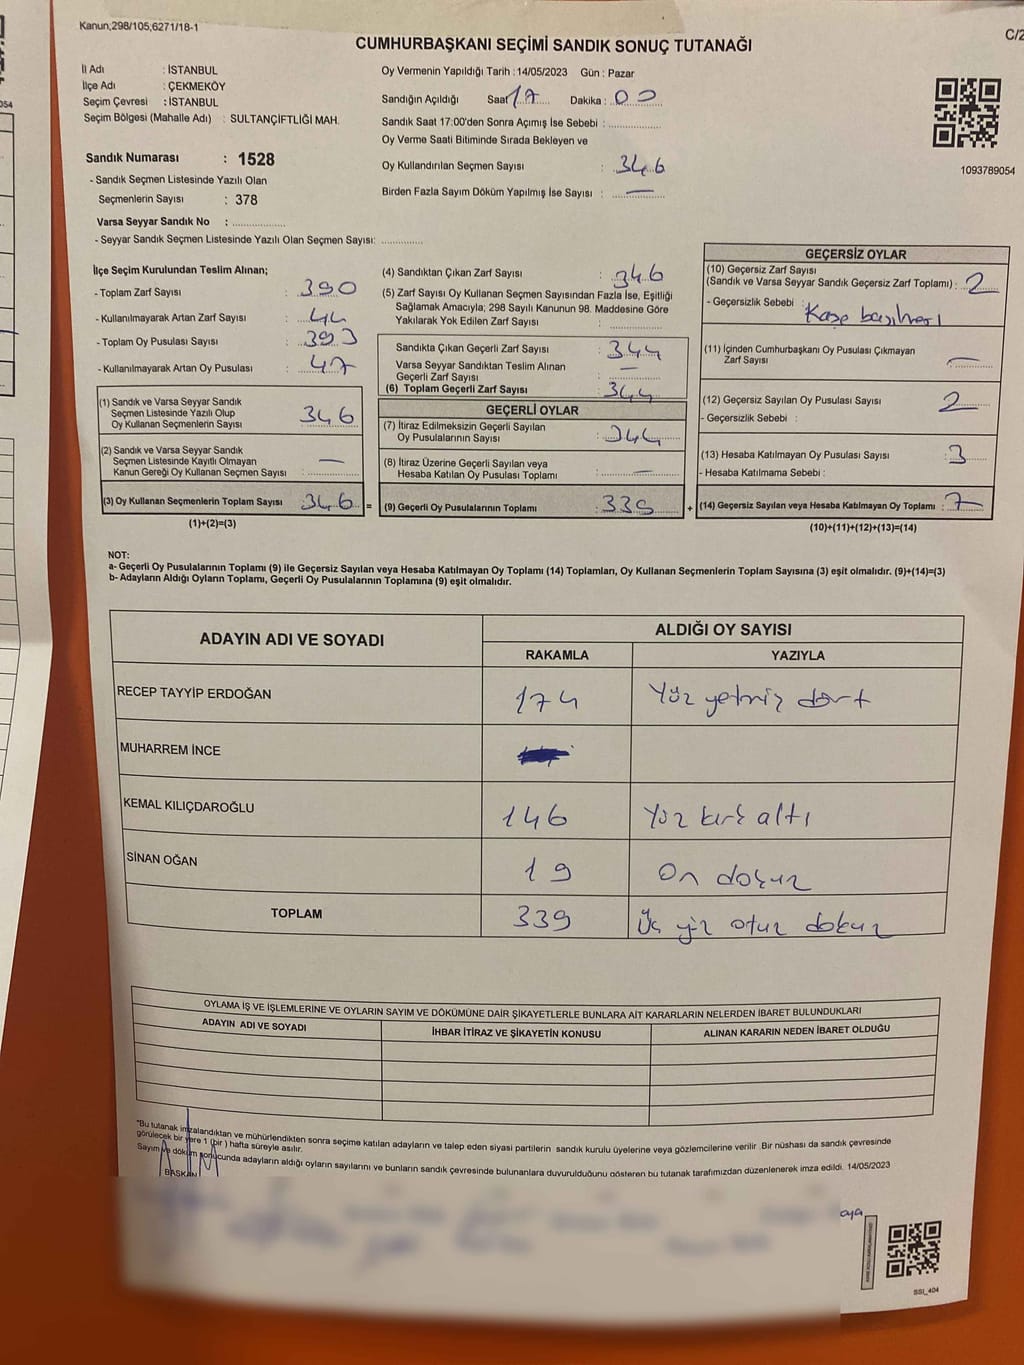 Kanun;298/105;6271/18-1
C/2
CUMHURBAŞKANI SEÇİMİ SANDIK SONUÇ TUTANAĞI
İl Adı : İSTANBUL
İlçe Adı : ÇEKMEKÖY
Seçim Çevresi : İSTANBUL
Seçim Bölgesi (Mahalle Adı) : SULTANÇİFTLİĞİ MAH.
Sandık Numarası : 1528
- Sandık Seçmen Listesinde Yazılı Olan
Seçmenlerin Sayısı : 378
Varsa Seyyar Sandık No :
- Seyyar Sandık Seçmen Listesinde Yazılı Olan Seçmen Sayısı:
Oy Vermenin Yapıldığı Tarih : 14/05/2023 Gün : Pazar
Sandığın Açıldığı Saat 17 Dakika : 00
Sandık Saat 17:00'den Sonra Açımış İse Sebebi :
Oy Verme Saati Bitiminde Sırada Bekleyen ve
Oy Kullandırılan Seçmen Sayısı : 346
Birden Fazla Sayım Döküm Yapılmış İse Sayısı : —
1093789054
054
İlçe Seçim Kurulundan Teslim Alınan;
- Toplam Zarf Sayısı : 390
- Kullanılmayarak Artan Zarf Sayısı : 44
- Toplam Oy Pusulası Sayısı : 393
- Kullanılmayarak Artan Oy Pusulası : 47
(1) Sandık ve Varsa Seyyar Sandık
Seçmen Listesinde Yazılı Olup
Oy Kullanan Seçmenlerin Sayısı : 346
(2) Sandık ve Varsa Seyyar Sandık
Seçmen Listesinde Kayıtlı Olmayan
Kanun Gereği Oy Kullanan Seçmen Sayısı : —
(3) Oy Kullanan Seçmenlerin Toplam Sayısı : 346 =
(1)+(2)=(3)
(4) Sandıktan Çıkan Zarf Sayısı : 346
(5) Zarf Sayısı Oy Kullanan Seçmen Sayısından Fazla İse, Eşitliği
Sağlamak Amacıyla; 298 Sayılı Kanunun 98. Maddesine Göre
Yakılarak Yok Edilen Zarf Sayısı :
Sandıkta Çıkan Geçerli Zarf Sayısı : 344
Varsa Seyyar Sandıktan Teslim Alınan —
Geçerli Zarf Sayısı :
(6) Toplam Geçerli Zarf Sayısı : 344
GEÇERLİ OYLAR
(7) İtiraz Edilmeksizin Geçerli Sayılan
Oy Pusulalarının Sayısı : 344
(8) İtiraz Üzerine Geçerli Sayılan veya
Hesaba Katılan Oy Pusulası Toplamı : —
(9) Geçerli Oy Pusulalarının Toplamı : 339 +
GEÇERSİZ OYLAR
(10) Geçersiz Zarf Sayısı
(Sandık ve Varsa Seyyar Sandık Geçersiz Zarf Toplamı) : 2
- Geçersizlik Sebebi : Kaşe
(11) İçinden Cumhurbaşkanı Oy Pusulası Çıkmayan
Zarf Sayısı : —
(12) Geçersiz Sayılan Oy Pusulası Sayısı 2
- Geçersizlik Sebebi :
(13) Hesaba Katılmayan Oy Pusulası Sayısı : 3
- Hesaba Katılmama Sebebi :
(14) Geçersiz Sayılan veya Hesaba Katılmayan Oy Toplamı : 7
(10)+(11)+(12)+(13)=(14)
NOT:
a- Geçerli Oy Pusulalarının Toplamı (9) ile Geçersiz Sayılan veya Hesaba Katılmayan Oy Toplamı (14) Toplamları, Oy Kullanan Seçmenlerin Toplam Sayısına (3) eşit olmalıdır. (9)+(14)=(3)
b- Adayların Aldığı Oyların Toplamı, Geçerli Oy Pusulalarının Toplamına (9) eşit olmalıdır.
ADAYIN ADI VE SOYADI
ALDIĞI OY SAYISI
RAKAMLA YAZIYLA
RECEP TAYYİP ERDOĞAN 174 Yüz yetmiş dört
MUHARREM İNCE
KEMAL KILIÇDAROĞLU 146 Yüz kırk altı
SİNAN OĞAN 19 On dokuz
TOPLAM 339 Üç yüz otuz dokuz
OYLAMA İŞ VE İŞLEMLERİNE VE OYLARIN SAYIM VE DÖKÜMÜNE DAİR ŞİKAYETLERLE BUNLARA AİT KARARLARIN NELERDEN İBARET BULUNDUKLARI
ADAYIN ADI VE SOYADI İHBAR İTİRAZ VE ŞİKAYETİN KONUSU ALINAN KARARIN NEDEN İBARET OLDUĞU
"Bu tutanak imzalandıktan ve mühürlendikten sonra seçime katılan adayların ve talep eden siyasi partilerin sandık kurulu üyelerine veya gözlemcilerine verilir. Bir nüshası da sandık çevresinde
görülecek bir yere 1 (bir) hafta süreyle asılır.
Sayım ve döküm sonucunda adayların aldığı oyların sayılarını ve bunların sandık çevresinde bulunanlara duyurulduğunu gösteren bu tutanak tarafımızdan düzenlenerek imza edildi. 14/05/2023
BAŞKAN
SSI_404